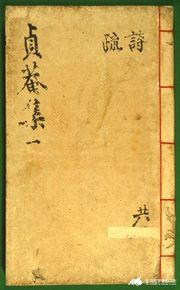 詩
疏
貞菴集 一
共